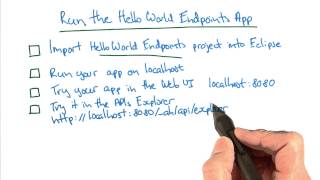 Run the Hello World Endpoints App
Import Hello World Endpoints project into Eclipse
Run your app on localhost
Try your app in the Web UI localhost:8080
Try it in the APIs Explorer
http://localhost:8080/_ah/api/explorer